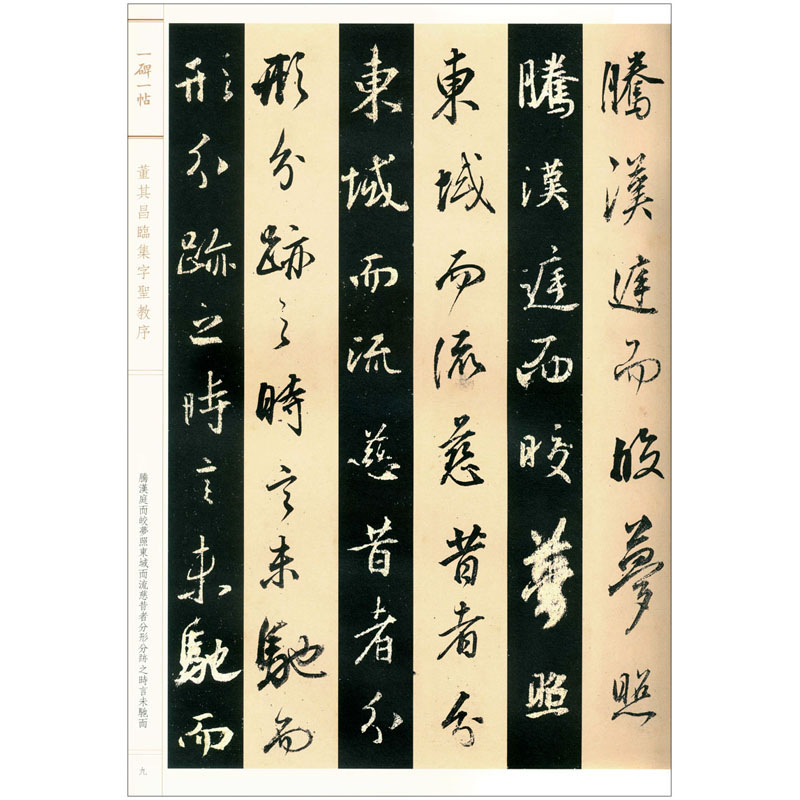 騰漢庭而皎夢照
騰漢庭而皎夢照
東域而流慈昔者分
東域而流慈昔者分
形分跡之時言未馳而
形分跡之時言未馳而
一碑一帖
董其昌臨集字聖教序
騰漢庭而皎夢照東域而流慈昔者分形分跡之時言未馳而
九